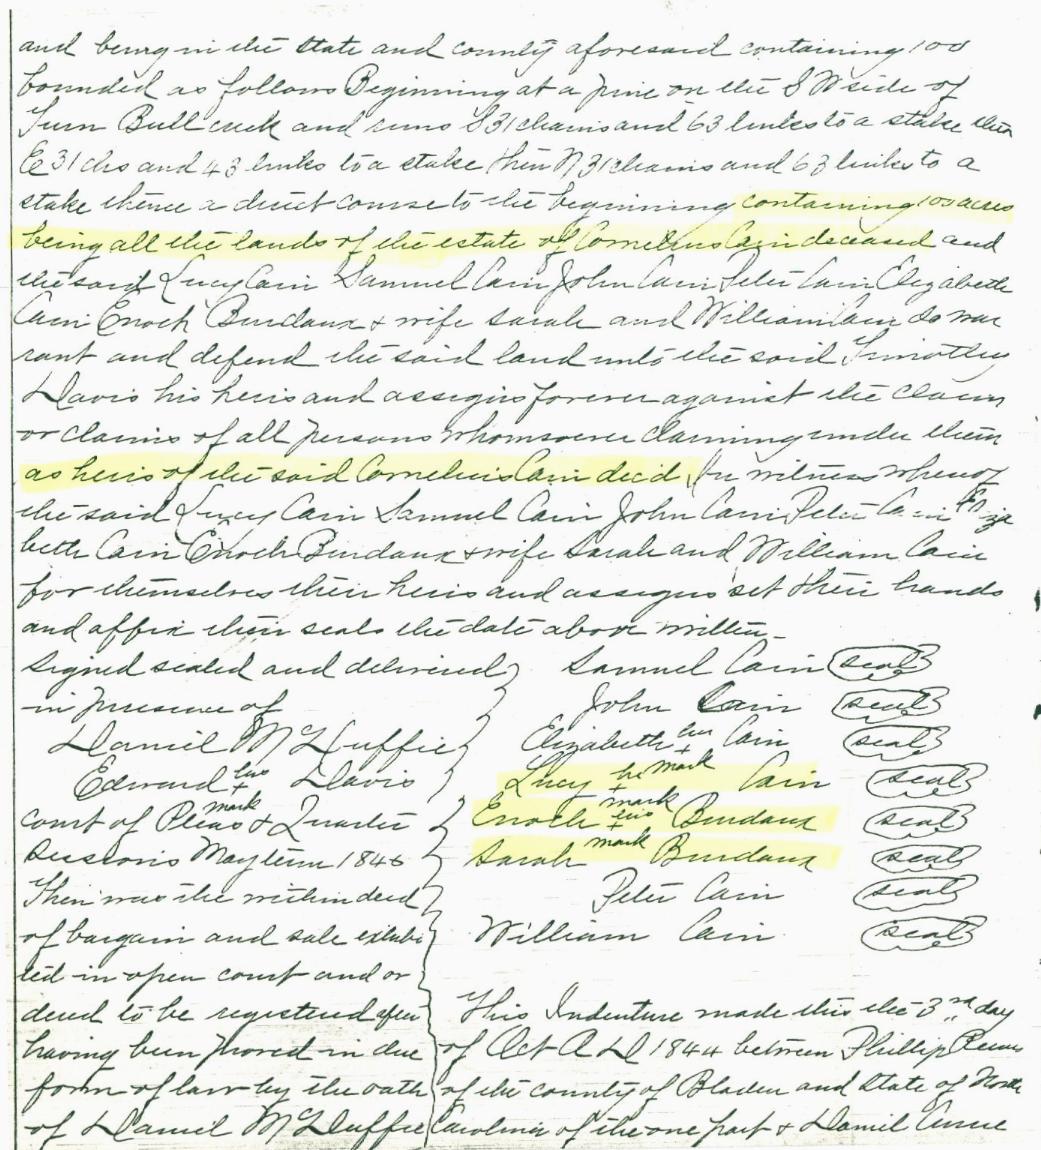 and being in the State and county aforesaid containing 100
bounded as follows Beginning at a pine on the S W side of
Turn Bull creek and runs S 31 chains and 63 links to a stake then
E 31 chs and 43 links to a stake then N 31 chains and 63 links to a
stake thence a direct course to the beginning containing 100 acres
being all the lands of the estate of Cornelius Cain deceased and
the said Lucy Cain Samuel Cain John Cain Peter Cain Elizabeth
Cain Enoch Burdaux & wife Sarah and William Cain do war
rant and defend the said land unto the said Timothy
Davis his heirs and assigns forever against the claim
or claims of all persons whomsoever claiming under them
as heirs of the said Cornelius Cain dec'd, In witness whereof
the said Lucy Cain Samuel Cain John Cain Peter Cain Eliza
beth Cain Enoch Burdaux & wife Sarah and William Cain
for themselves their heirs and assigns set their hands
and affix their seals the date above written _
Signed sealed and delivered ) Samuel Cain (seal)
in presence of ) John Cain (seal)
Daniel McDuffie ) Elizabeth her + Cain (seal)
Edward his + Davis ) Lucy her + mark Cain (seal)
court of Pleas mark & Quarter ) Enoch his + mark Burdaux (seal)
Sessions May term 1846 ) Sarah + mark Burdaux (seal)
Then was the within deed ) Peter Cain (seal)
of bargain and sale exhibi ) William Cain (seal)
ted in open court and or
dered to be registered after
having been proved in due
form of law by the oath
of Daniel McDuffie
This Indenture made this the 3rd day
of Oct A D 1844 between Phillip
of the county of Bladen and State of North
Carolina of the one part & Daniel